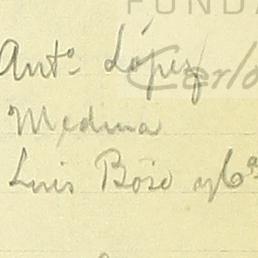 FUNDA
Carlo
Antº López
Medina
Luis Bóse y Cª